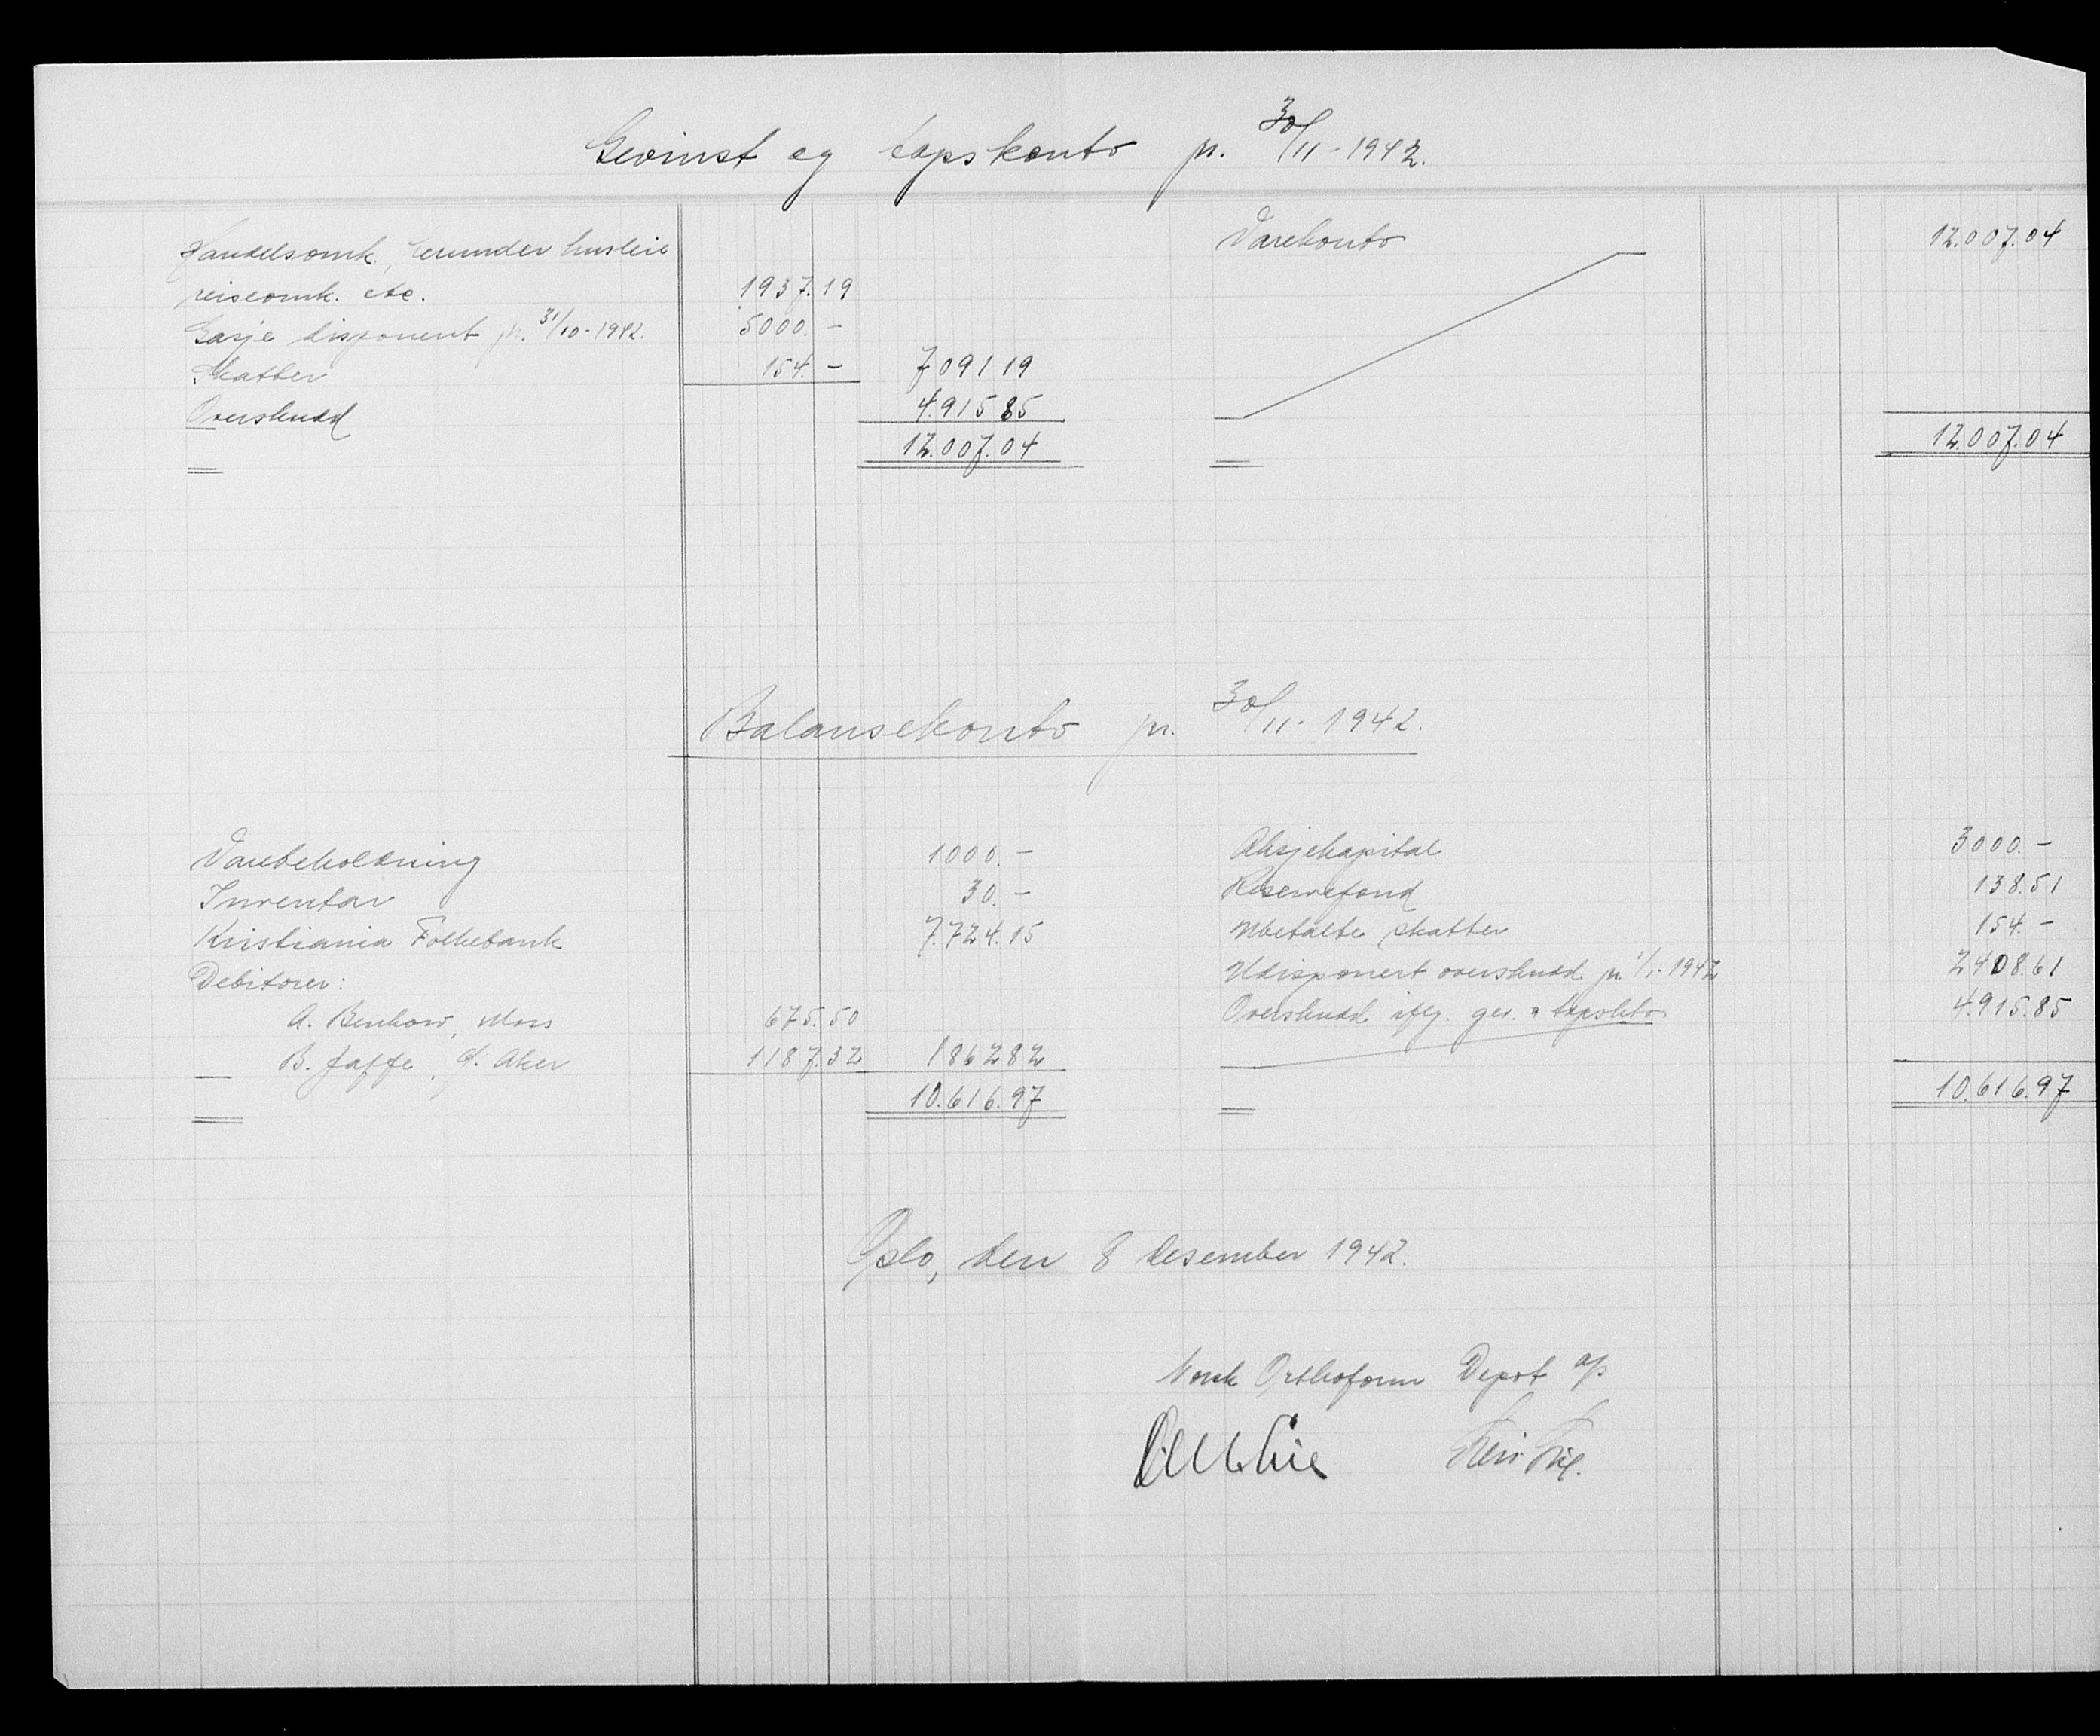 Gevinst og tapskonto pr. 30/11-1942.
Handelsomk., herunder husleie
reiseomk. etc. 1937.19
Gasje disponent pr. 31/10-1942. 5000.-
Skatter 154.- 709119
Overskudd 4.91585
12.007.04
Varekonto 12.007.04
12.007.04
Balansekonto pr. 30/11-1942.
Varebeholdning 1000.-
Inventar 30.-
Kristiania Folkebank 7.724.15
Debitorer:
A. Benkow, Moss 675.50
B. Jaffe, Ø. Aker 1187.32 186282
10.616.97
Aksjekapital 3000.-
Reservefond 138.51
Ubetalte skatter 154.-
Udisponert overskudd pr 1/1-1942 2408.61
Overskudd iflg. gev. & tapskto 4.915.85
10.616.97
Oslo, den 8 desember 1942.
Norsk Orthoform Depot A/S